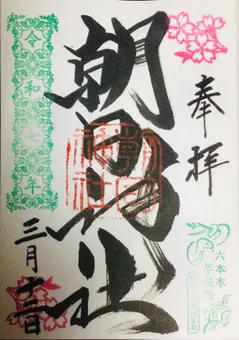 奉拝
六本木
朝日神社
朝日
神社
令和七年
三月十二日